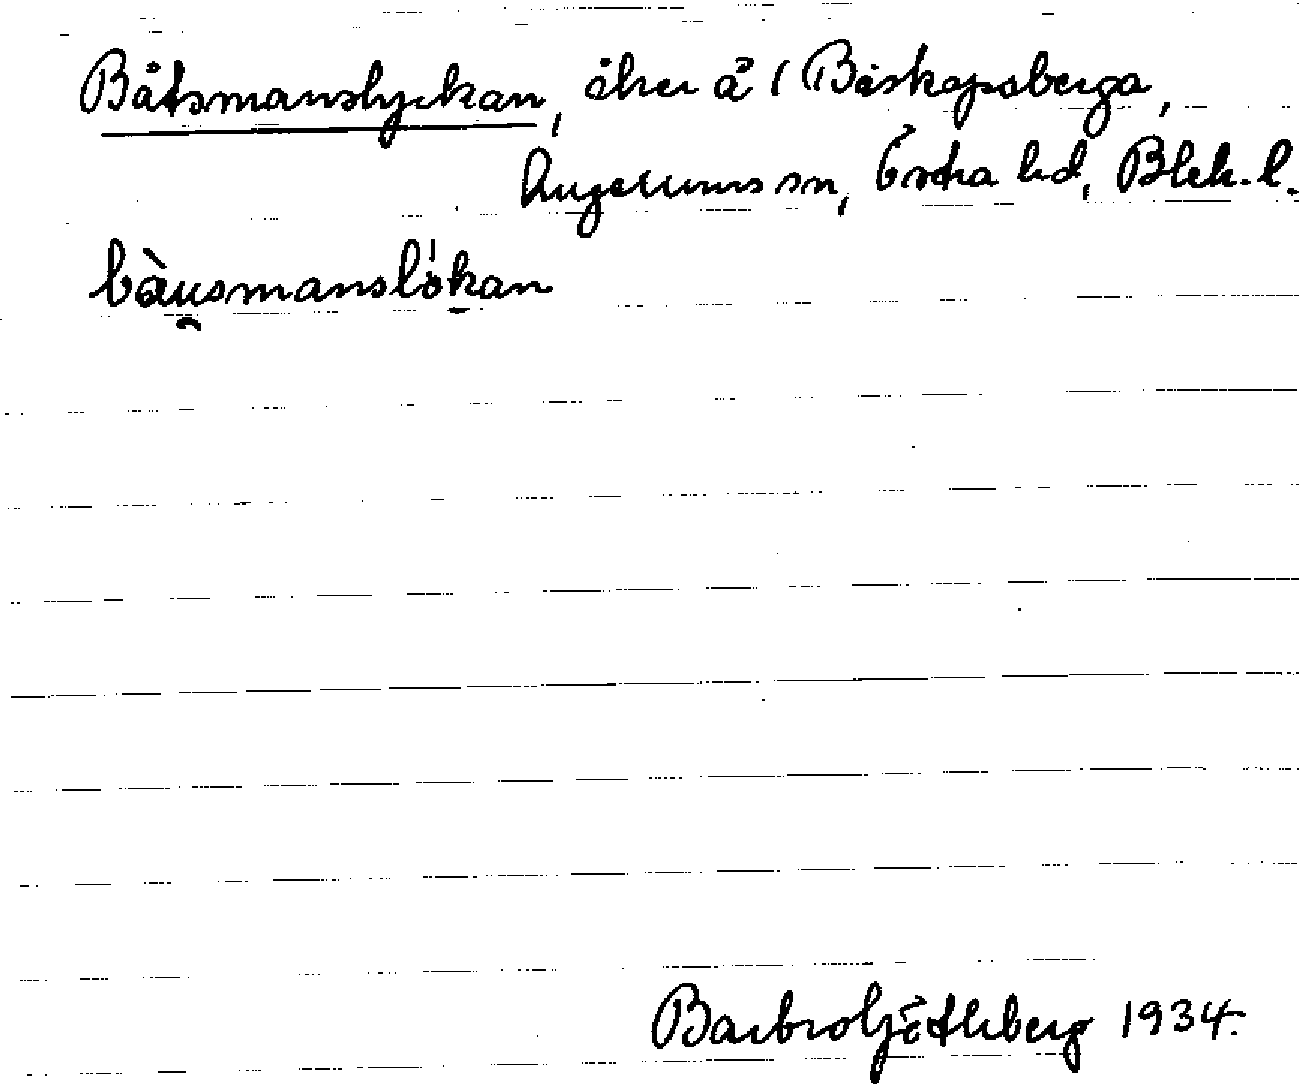 Båtsmanslyckan, åker å 1 Biskopsberga,
Augerums sn, Östra hd, Blek. l.
bàu̯smanslókan
Barbro Göthberg 1934.